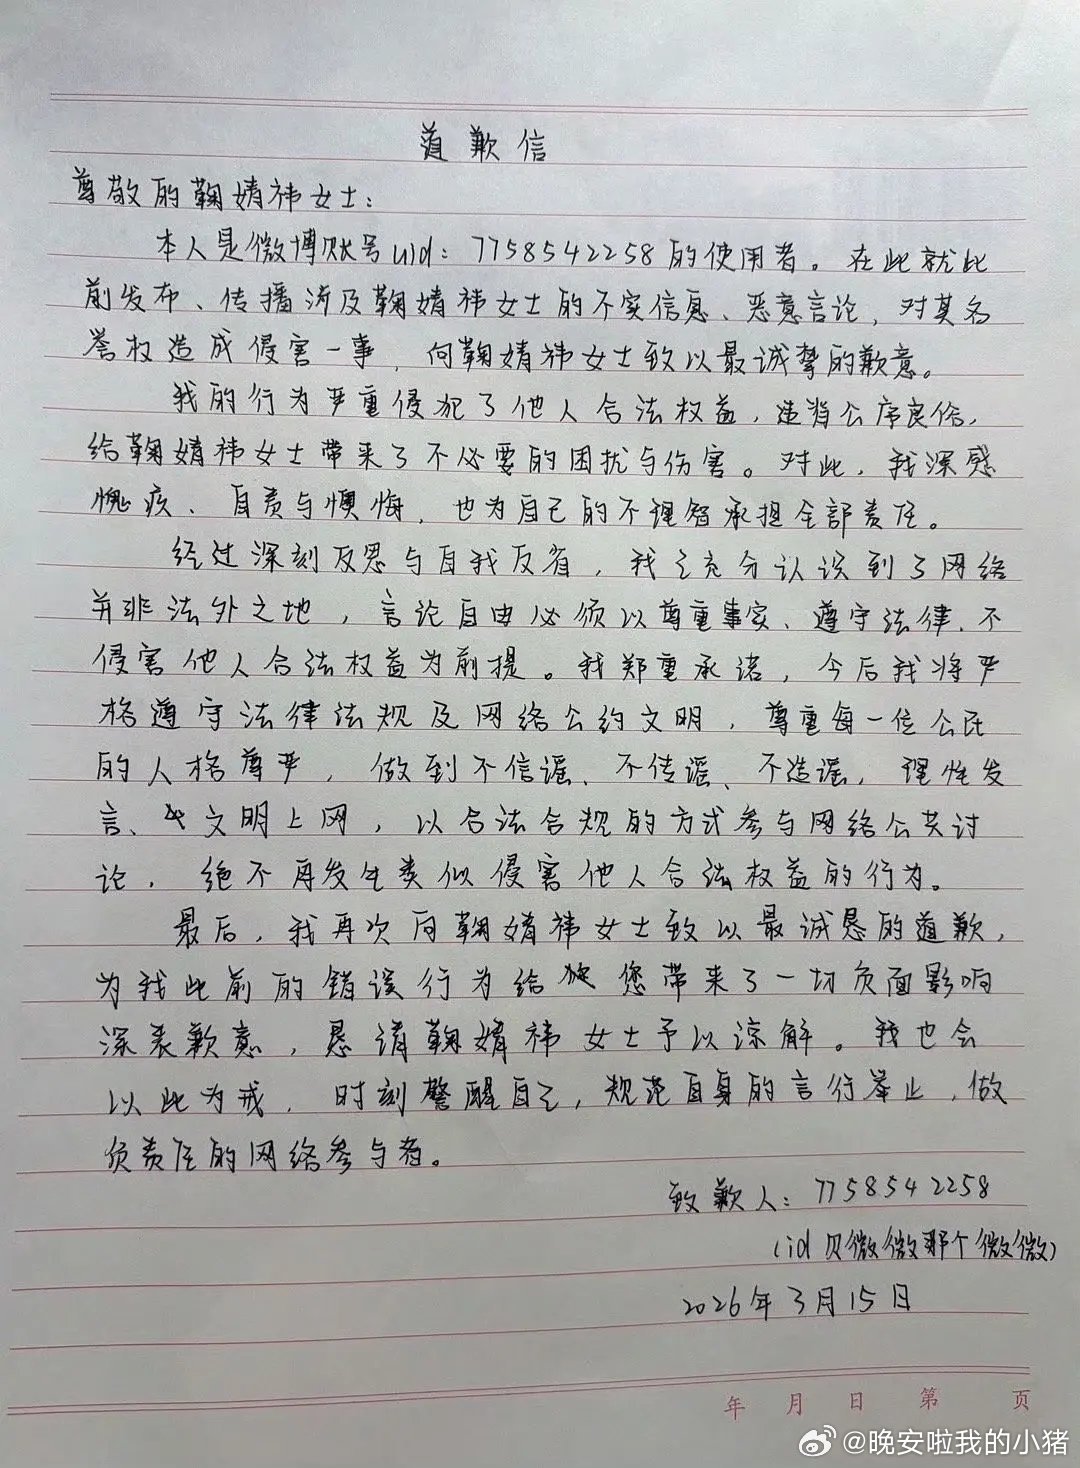 道歉信
尊敬的鞠婧祎女士：
本人是微博账号uid：7758542258的使用者。在此就此
前发布、传播涉及鞠婧祎女士的不实信息、恶意言论，对其名
誉权造成侵害一事，向鞠婧祎女士致以最诚挚的歉意。
我的行为严重侵犯了他人合法权益，违背公序良俗，
给鞠婧祎女士带来了不必要的困扰与伤害。对此，我深感
愧疚、自责与懊悔，也为自己的不理智承担全部责任。
经过深刻反思与自我反省，我已充分认识到了网络
并非法外之地，言论自由必须以尊重事实、遵守法律、不
侵害他人合法权益为前提。我郑重承诺，今后我将严
格遵守法律法规及网络公约文明，尊重每一位公民
的人格尊严，做到不信谣、不传谣、不造谣，理性发
言、文明上网，以合法合规的方式参与网络公共讨
论，绝不再发生类似侵害他人合法权益的行为。
最后，我再次向鞠婧祎女士致以最诚恳的道歉，
为我此前的错误行为给您带来了一切负面影响
深表歉意，恳请鞠婧祎女士予以谅解。我也会
以此为戒，时刻警醒自己，规范自身的言行举止，做
负责任的网络参与者。
致歉人：7758542258
（id 贝微微那个微微）
2026年3月15日
年 月 日 第 页
@晚安啦我的小猪